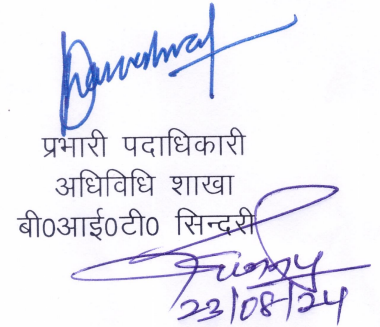 प्रभारी पदाधिकारी
अधिविधि शाखा
बी0आई0टी0 सिन्दरी
23/08/24